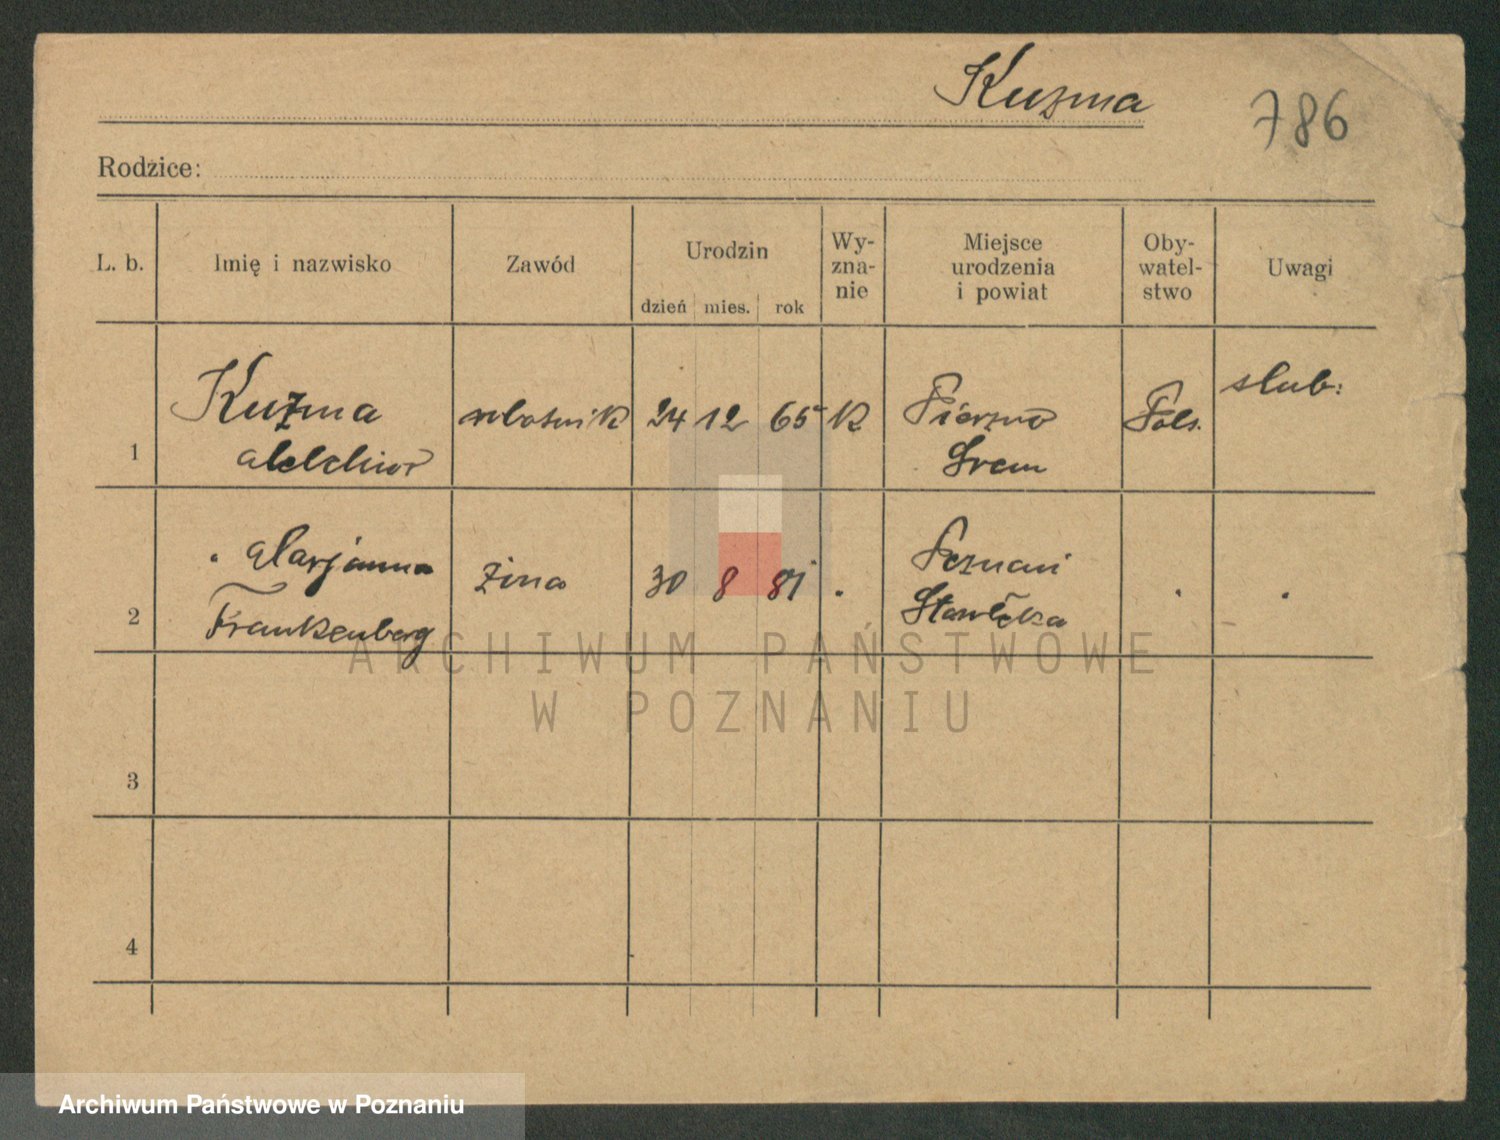 Kuzma
786
Rodzice:
L. b.
Imię i nazwisko
Zawód
Urodzin
dzień mies. rok
Wy-
zna-
nie
Miejsce
urodzenia
i powiat
Oby-
watel-
stwo
Uwagi
1
Kuzma
Melchior
robotnik
24 12 65
K
Śrem
Pols.
slub:
2
" Marjanna
Frankenberg
żona
30 8 81
"
Poznań
"
"
3
4
ARCHIWUM PAŃSTWOWE
W POZNANIU
Archiwum Państwowe w Poznaniu